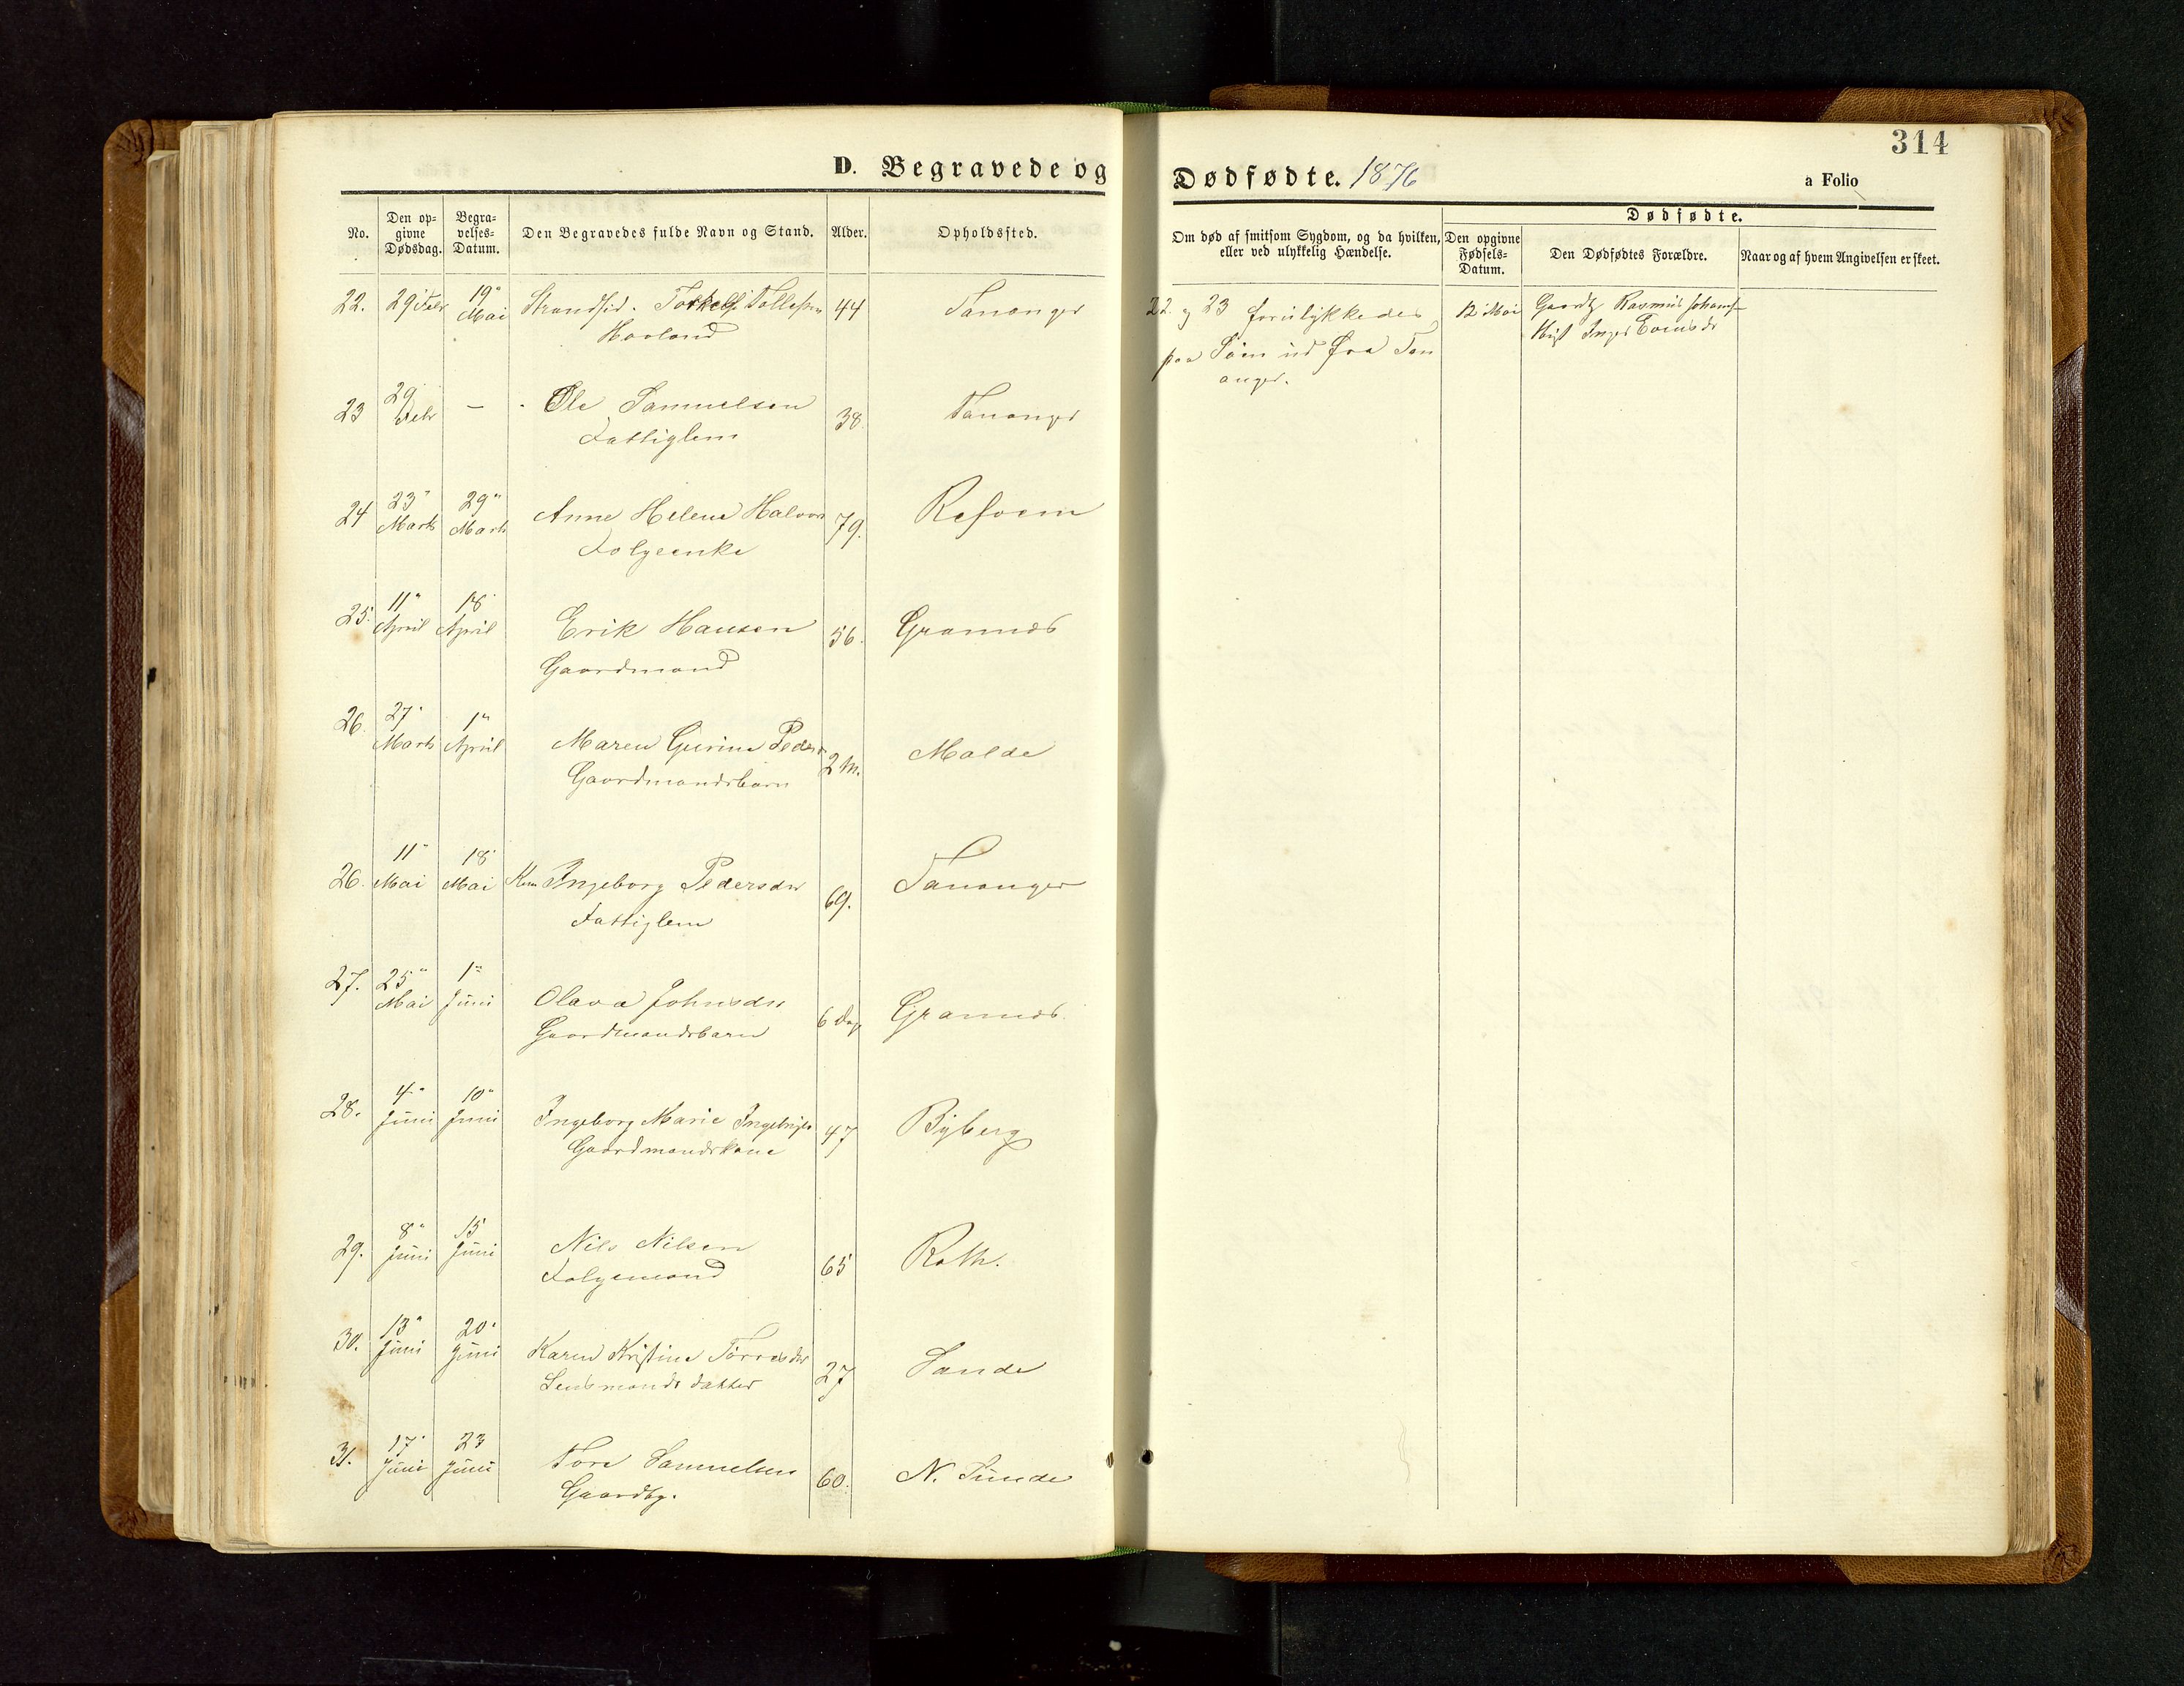 314
D. Begravede og Dødfødte. 1876
a Folio
No. Den opgivne Dødsdag. Begravelses-Datum. Den Begravedes fulde Navn og Stand. Alder. Opholdssted. Om død af smitsom Sygdom, og da hvilken, eller ved ulykkelig Hændelse. Dødfødte.
Den opgivne Fødsels-Datum. Den Dødfødtes Forældre. Naar og af hvem Angivelsen er skeet.
22. 29 Febr 19" Mai Strandsid. Torkel Tollefsen 44 Tananger
Havland
22. og 23 forulykkedes
paa Søen ud fra Tan
anger.
12 Mai Gaardbr Rasmus Johans
Inger
23 29 Febr — Ole Samuelsen 38. Tananger
Fattiglem
24 23" Marts 29" Marts Anne Helene Halvors 79. Refsem
Folgeenke
25. 11" April 18 April Erik Hansen 56. Grannes
Gaardmand
26. 27" Marts 1" April Maren Gurine Peders 2 M. Malde
Gaardmandsbarn
26. 11" Mai 18 Mai Ingeborg Pedersdr 69. Tananger
Fattiglem
27. 25" Mai 1" Juni Olava Johnsdr 6 Dag Grannes
Gaardmandsbarn
28. 4" Juni 10" Juni Ingeborg Marie Ingebrigts 47 Byberg
Gaardmandskone
29. 8" Juni 15 Juni Nils Nilsen 65 Roth.
Folgemand
30. 13" Juni 20" Juni Karen Kristine Torresdr 27 Sande
Lensmands datter
31. 17" Juni 23 Juni Tore Samuelsen 60. N. Sunde
Gaardbr.